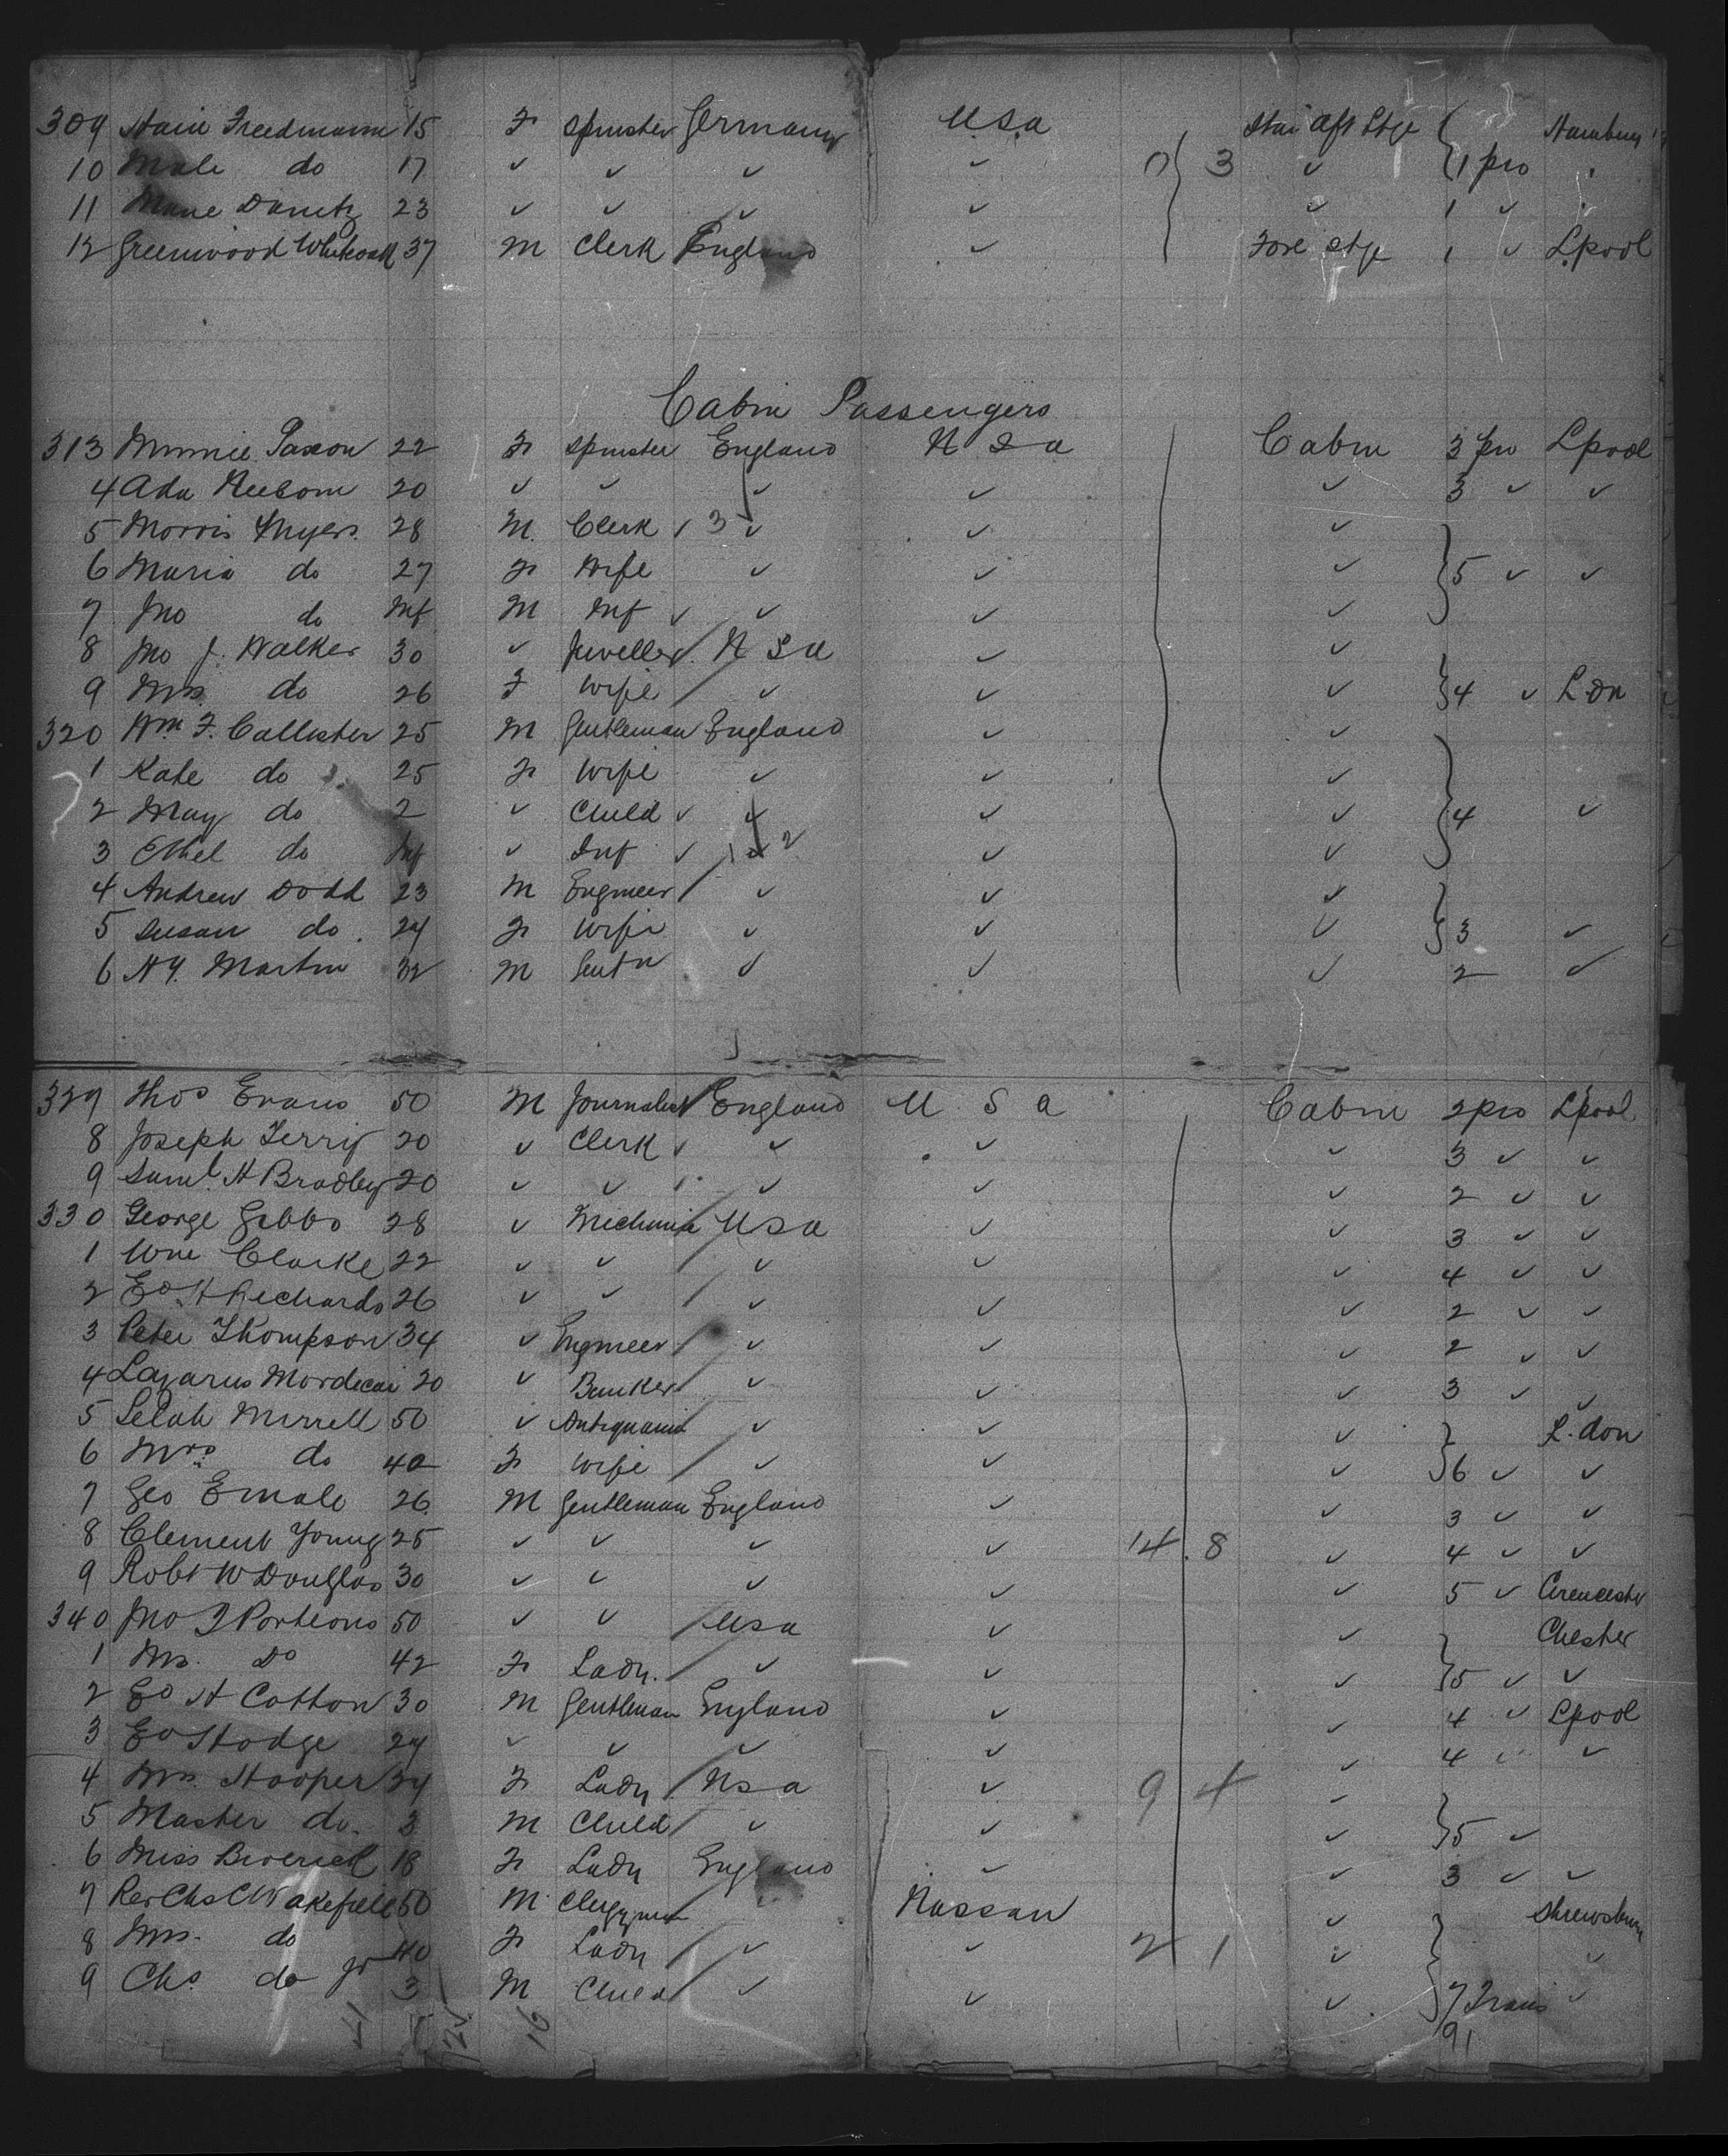 309 Freedmann 15 F Spinster Germany U.S.a Aft Stge Hamburg
10 Male do 17 ✓ ✓ ✓ ✓ 0 3 ✓ 1 pro
11 23 ✓ ✓ ✓ ✓ ✓ 1 ✓
12 Greenwood 37 M Clerk England ✓ Fore Stge 1 ✓ Lpool
Cabin Passengers
313 Minnie Paxon 22 F Spinster England U S a Cabin 3 pro Lpool
4 Ada 20 ✓ ✓ ✓ ✓ ✓ 3 ✓ ✓
5 Morris Myers 28 M Clerk 3 ✓ ✓ ✓
6 Maria do 27 F Wife ✓ ✓ ✓ 5 ✓ ✓
7 Jno do Inf M Inf ✓ ✓ ✓ ✓
8 Jno J. Walker 30 ✓ Jeweller U S a ✓ ✓
9 Mrs do 26 F Wife ✓ ✓ ✓ 4 ✓ L.Dn
320 Wm F. Callister 25 M Gentleman England ✓ ✓
1 Kate do 25 F Wife ✓ ✓ ✓
2 May do 2 ✓ Child ✓ ✓ ✓ ✓ 4 ✓
3 Ethel do Inf ✓ Inf ✓ ✓ 2 ✓ ✓
4 Andrew Dodd 23 M Engineer ✓ ✓ ✓
5 Susan do. 24 F Wife ✓ ✓ ✓ 3 ✓
6 Hy. Martin 32 M Gentn ✓ ✓ ✓ 2 ✓
327 Thos Evans 50 M Journalist England U S a Cabin 2 pro Lpool
8 Joseph Terry 20 ✓ Clerk ✓ ✓ ✓ ✓ 3 ✓ ✓
9 Saml. H Bradley 20 ✓ ✓ ✓ ✓ ✓ 2 ✓ ✓
330 George Gibbs 28 ✓ Mechanic U S a ✓ ✓ 3 ✓ ✓
1 Wm Clarke 22 ✓ ✓ ✓ ✓ ✓ 4 ✓ ✓
2 Ed H Richards 26 ✓ ✓ ✓ ✓ ✓ 2 ✓ ✓
3 Peter Thompson 34 ✓ Engineer ✓ ✓ ✓ 2 ✓ ✓
4 Lazarus Mordecai 20 ✓ Banker ✓ ✓ ✓ 3 ✓ ✓
5 Selah Merrell 50 ✓ ✓ ✓ ✓ L.don
6 Mrs do 40 F Wife ✓ ✓ ✓ 6 ✓ ✓
7 Geo 26 M Gentleman England ✓ ✓ 3 ✓ ✓
8 Clement Young 25 ✓ ✓ ✓ ✓ 14 8 ✓ 4 ✓ ✓
9 Robt W Douglas 30 ✓ ✓ ✓ ✓ ✓ 5 ✓ Cirencester
340 Jno Porteous 50 ✓ ✓ U s a ✓ ✓ Chester
1 Mrs. Do 42 F Lady. ✓ ✓ ✓ 5 ✓ ✓
2 Ed H Cotton 30 M Gentleman England ✓ ✓ 4 ✓ Lpool
3 Ed Hodge 24 ✓ ✓ ✓ ✓ ✓ 4 ✓ ✓
4 Mrs. Hooper 34 F Lady U s a ✓ 9 4 ✓
5 Master do. 3 M Child ✓ ✓ ✓ 5 ✓
6 Miss 18 F Lady England ✓ ✓ 3 ✓ ✓
7 Rev Chs C Wakefield 50 M Clergyman Nassau ✓ Shrewsbury
8 Mrs. do 40 F Lady ✓ ✓ 2 1 ✓ ✓
9 Chs. do Jr 3 M Child ✓ ✓ ✓ 7 Trans ✓
16 91